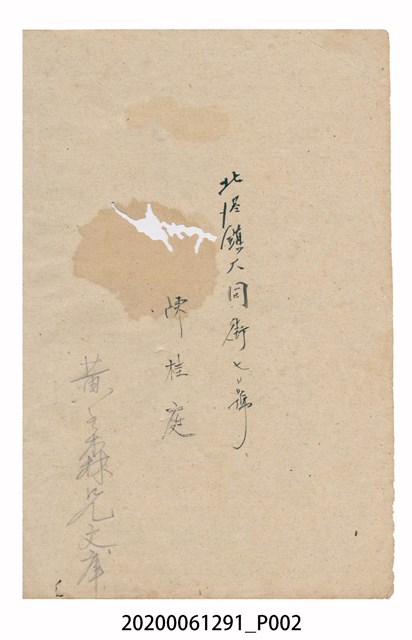 北港鎮大同街七號
陳桂庭
黃玉森兄文庫
20200061291_P002